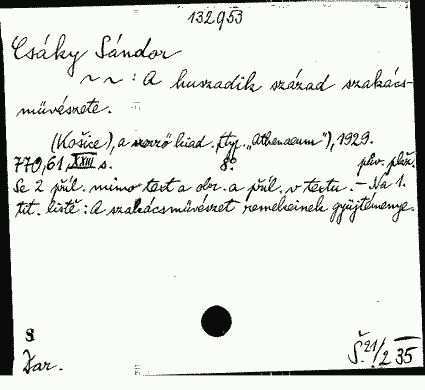 132953
Csáky Sándor
~ ~ : A huszadik század szakács-
művészete.
(Košice), a szerző kiad. ftyp. „Athenaeum"), 1929.
770, 61, XXIII s. 8°. plv. pláž.
Se 2 příl. mimo text a obr. a příl. v textu. – Na 1.
tit. listě : A szakácsművészet remekeinek gyüjteménye.
8
Dar.
Š. 21/2 35